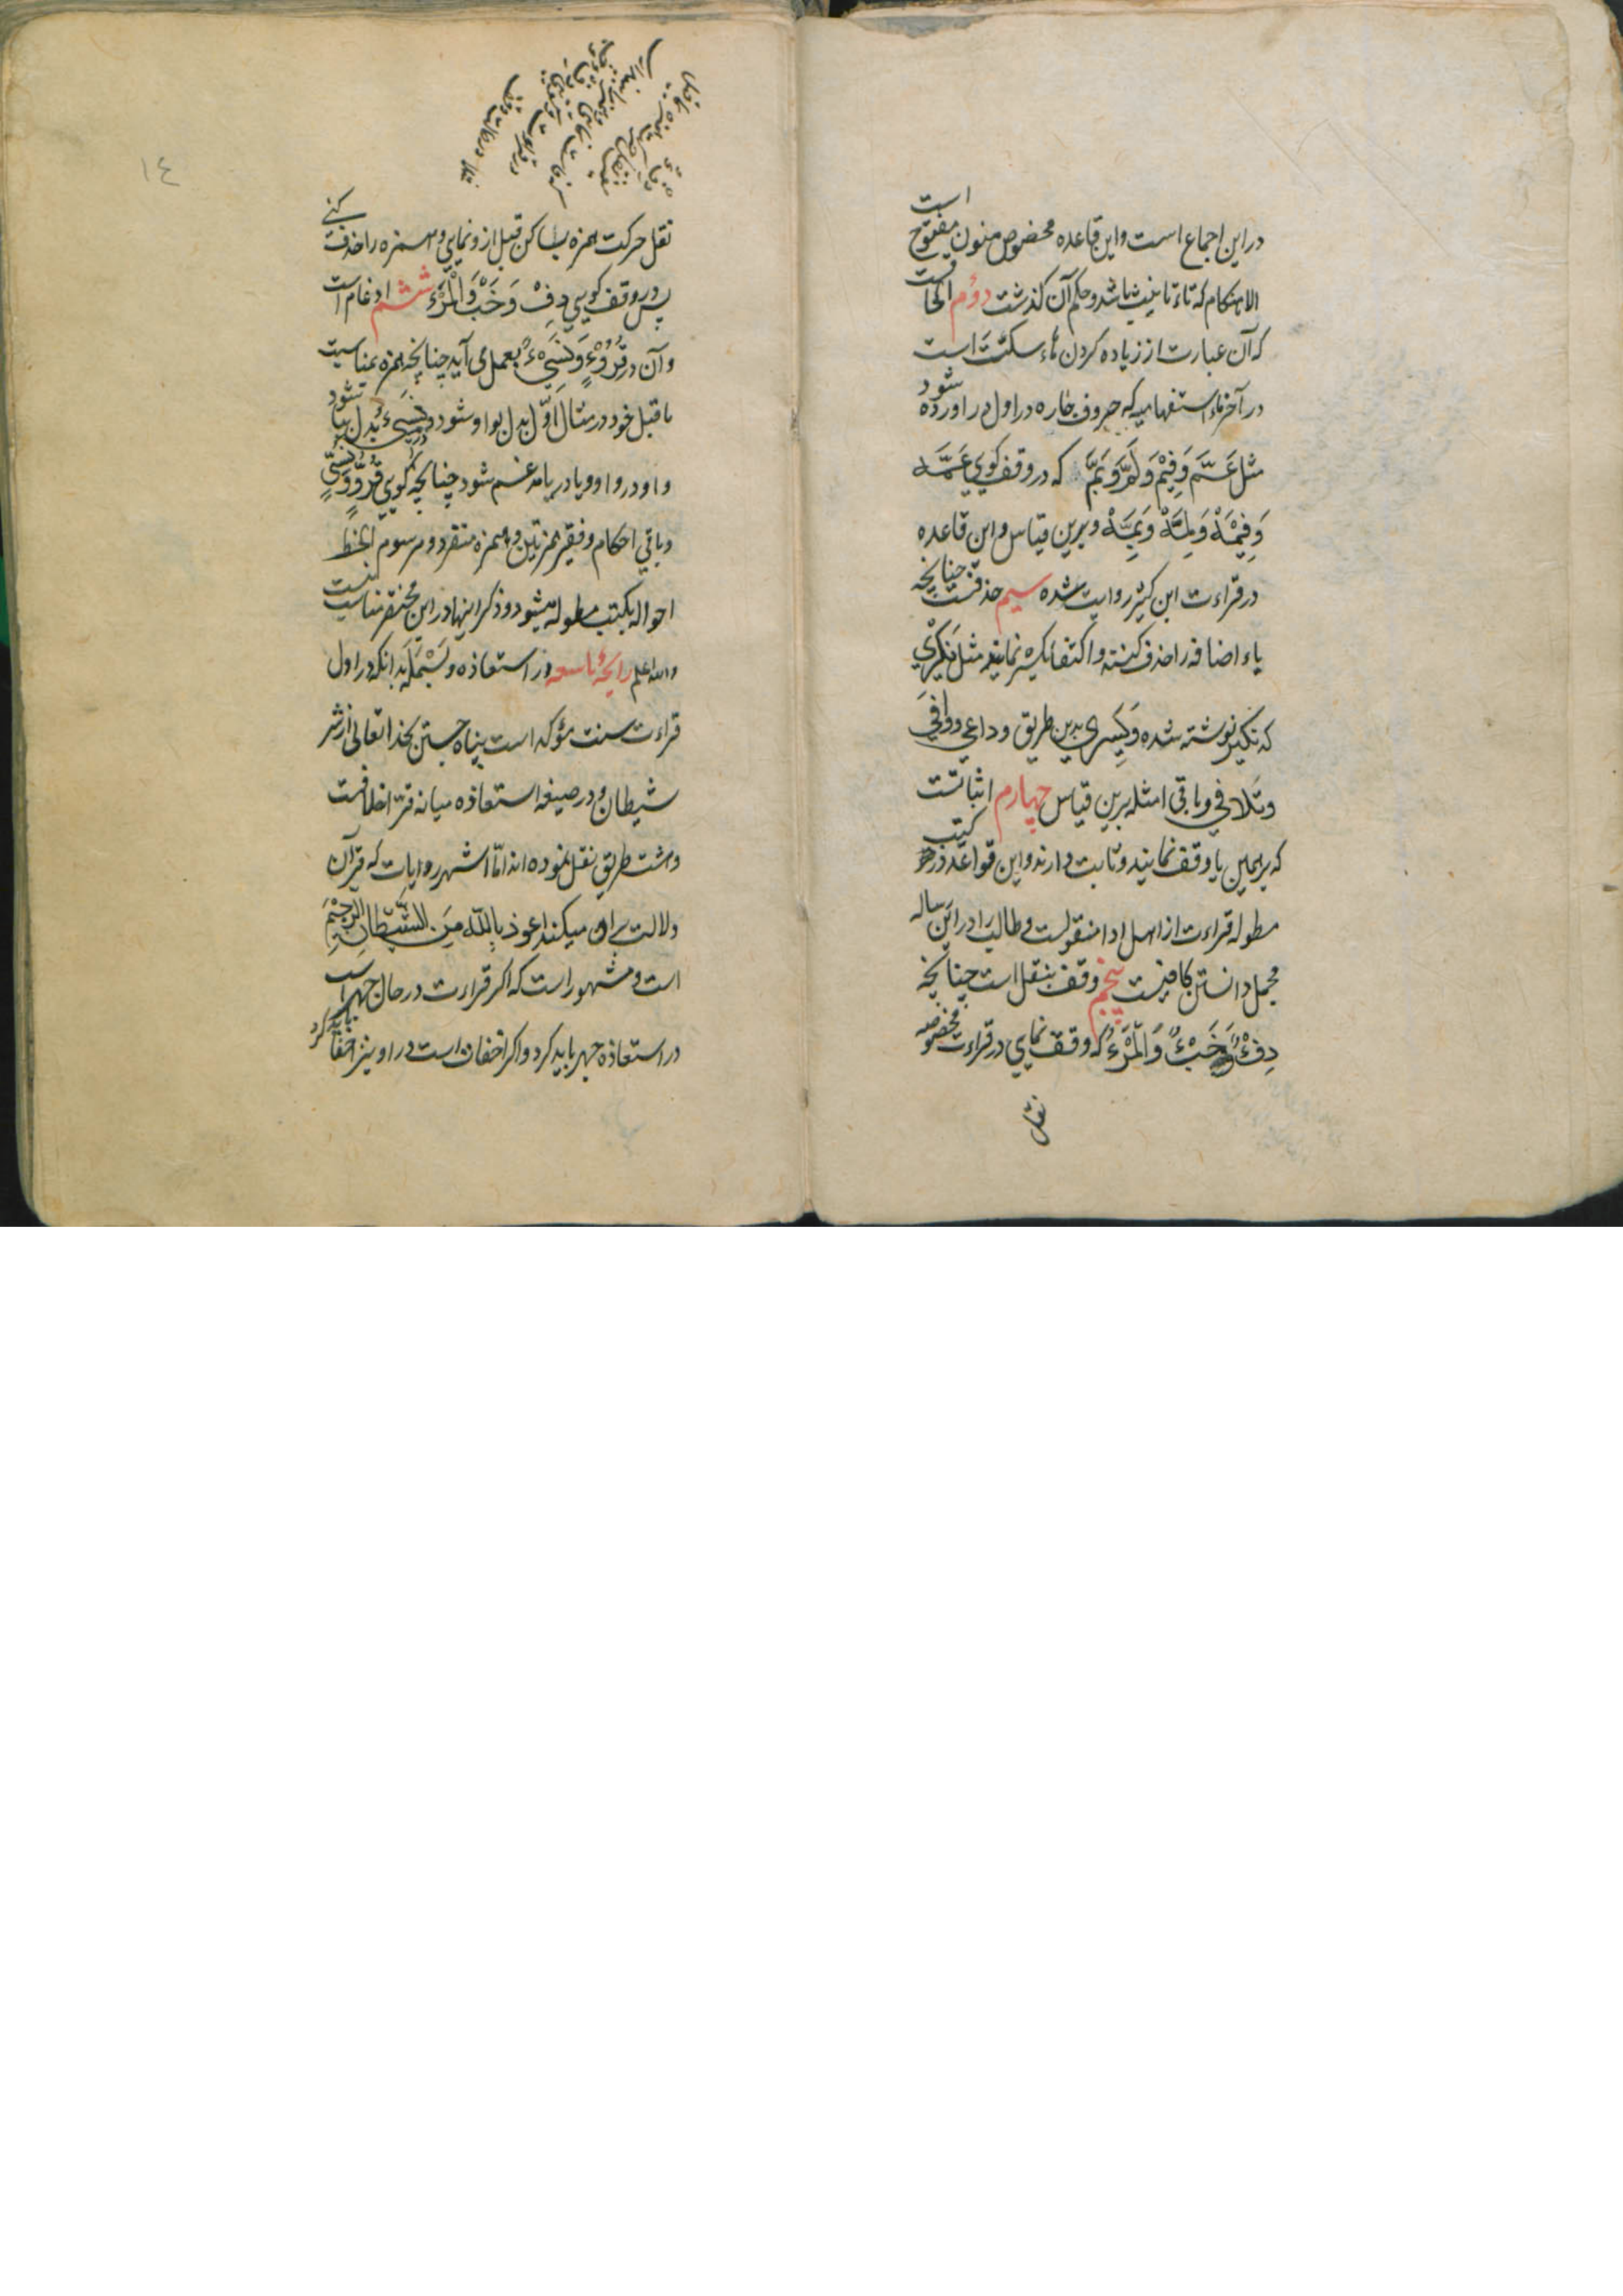 در این اجماع است و این قاعده مخصوص منون مفتوح است
الا هنکام که تاء تانیث باشد و حکم آن کذشت دوم الحاقست
که آن عبارت از زیاده کردن هاء سکتت است
در آخر ماء استفهامیه که حروف جاره در اول در اورده شود
مثل عَمَّ وَفِيْمَ وَلِمَ وَبِمَ که در وقف کویی عَمَّهْ
وَفِيْمَهْ وَلِمَهْ وَبِمَهْ و برین قیاس و این قاعده
در قراءت ابن کثیر روایت شده سیم حذفست چنانچه
یاء اضافه را حذف کنند و اکتفا بکسره نمایند مثل نکیری
که نکیر نوشته شده و یسری بدین طریق و داعی و واقی
و تلاقی و باقی امثله برین قیاس چهارم اثباتست
که بر همین یا وقف نمایند و ثابت دارند و این قواعد در کتب
مطوله قراءت از اهل ادا منقولست و طالب را در این رساله
مجمل دانستن کافیست پنجم وقف بنقل است چنانچه
دِفْءٌ وَخَبْءٌ وَالْمَرْءُ که وقف نمایی در قراءت مخصوصه
نقل
١٤
نقل حرکت همزه بساکن قبل ازو نمایی و همزه را حذف کنی
پس در وقف کویی دِفْ وَخَبْ وَالْمَرْ ششم ادغام است
و آن در قُرُوْءٍ وَنَسِيْءٌ بعمل می آید چنانچه همزه بمناسبت
ماقبل خود در مثال اوّل بدل بواو شود و در نسیء بدل بیا شود
و او در واو و یا در یا مدغم شود چنانچه کویی قُرُوٍّ وَنَسِيٌّ
و باقی احکام وقفیه همزتین و همزه منفرد و مرسوم الخط
احواله بکتب مطوله میشود و ذکر اینها در این مختصر مناسب نیست
والله اعلم رایحهٔ تاسعه در استعاذه و بَسْمَله بدانکه در اول
قراءت سنت مؤکد است پناه جستن بخدا تعالی از شر
شیطان و در صیغه استعاذه میانه قرّا خلافست
و هشت طریق نقل نموده اند امّا اشهر روایات که قرآن
دلالت بر او میکند اعوذ بِاللّهِ مِنَ الشَّيْطَانِ الرَّجِيْمِ
است و مشهور است که اکر قراءت در حال جهر است
در استعاذه جهر باید کرد و اکر اخفات است در او نیز اخفا باید کرد